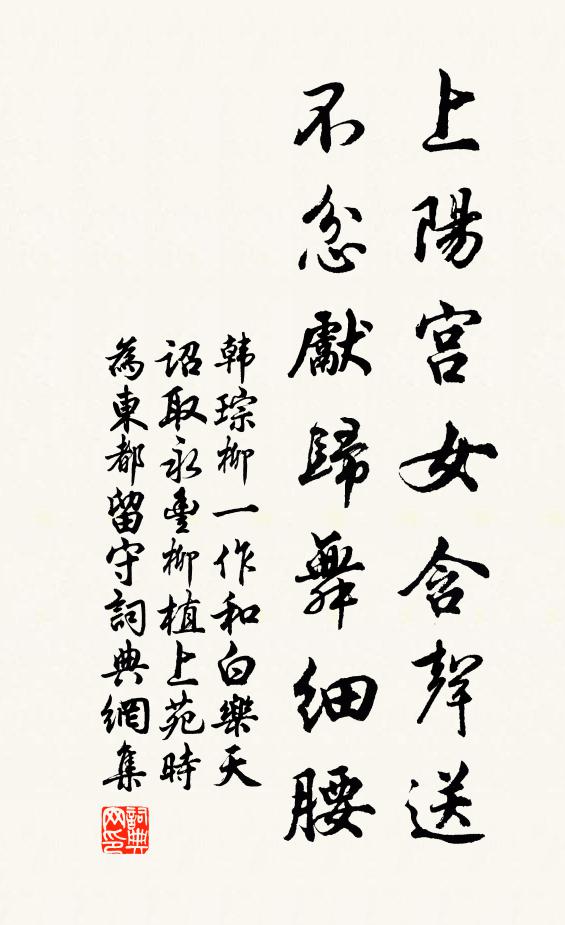 上陽宮女含聲送
不忿獻歸舞細腰
韩琮柳一作和白樂天
詔取永豐柳植上苑時
為東都留守詞典網集
詞典
网印